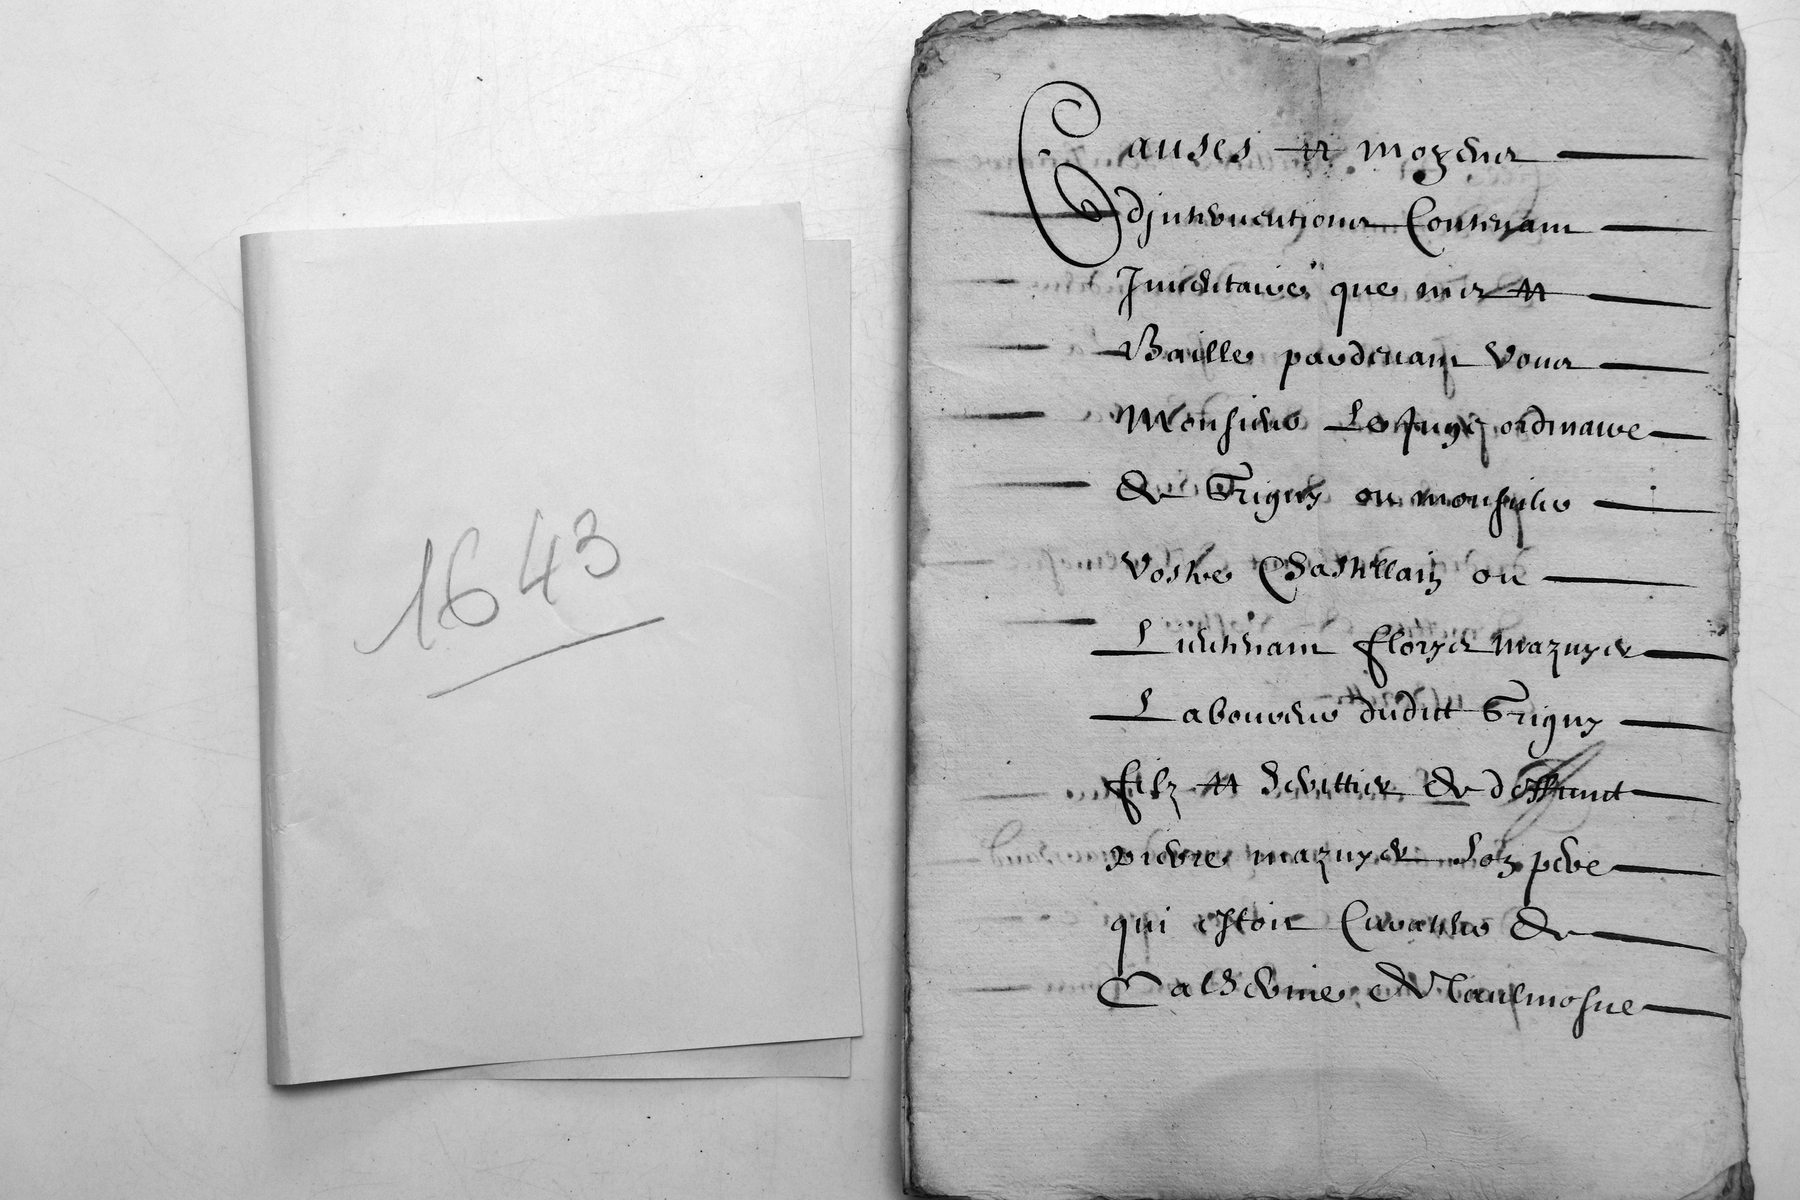 1643
Causes et moyens
djntervention Contenant
Jnventaire que met et
Baille pardevant vous
Monsieur Le Juge ordinaire
de Grigny ou monsieur
vostre Chastellain ou
Lieutenant fleory mazuyer
Laboureur dudict Grigny
filz et herittier de deffunct
pierre mazuyer son pere
qui estoit Curateur de
Catherine